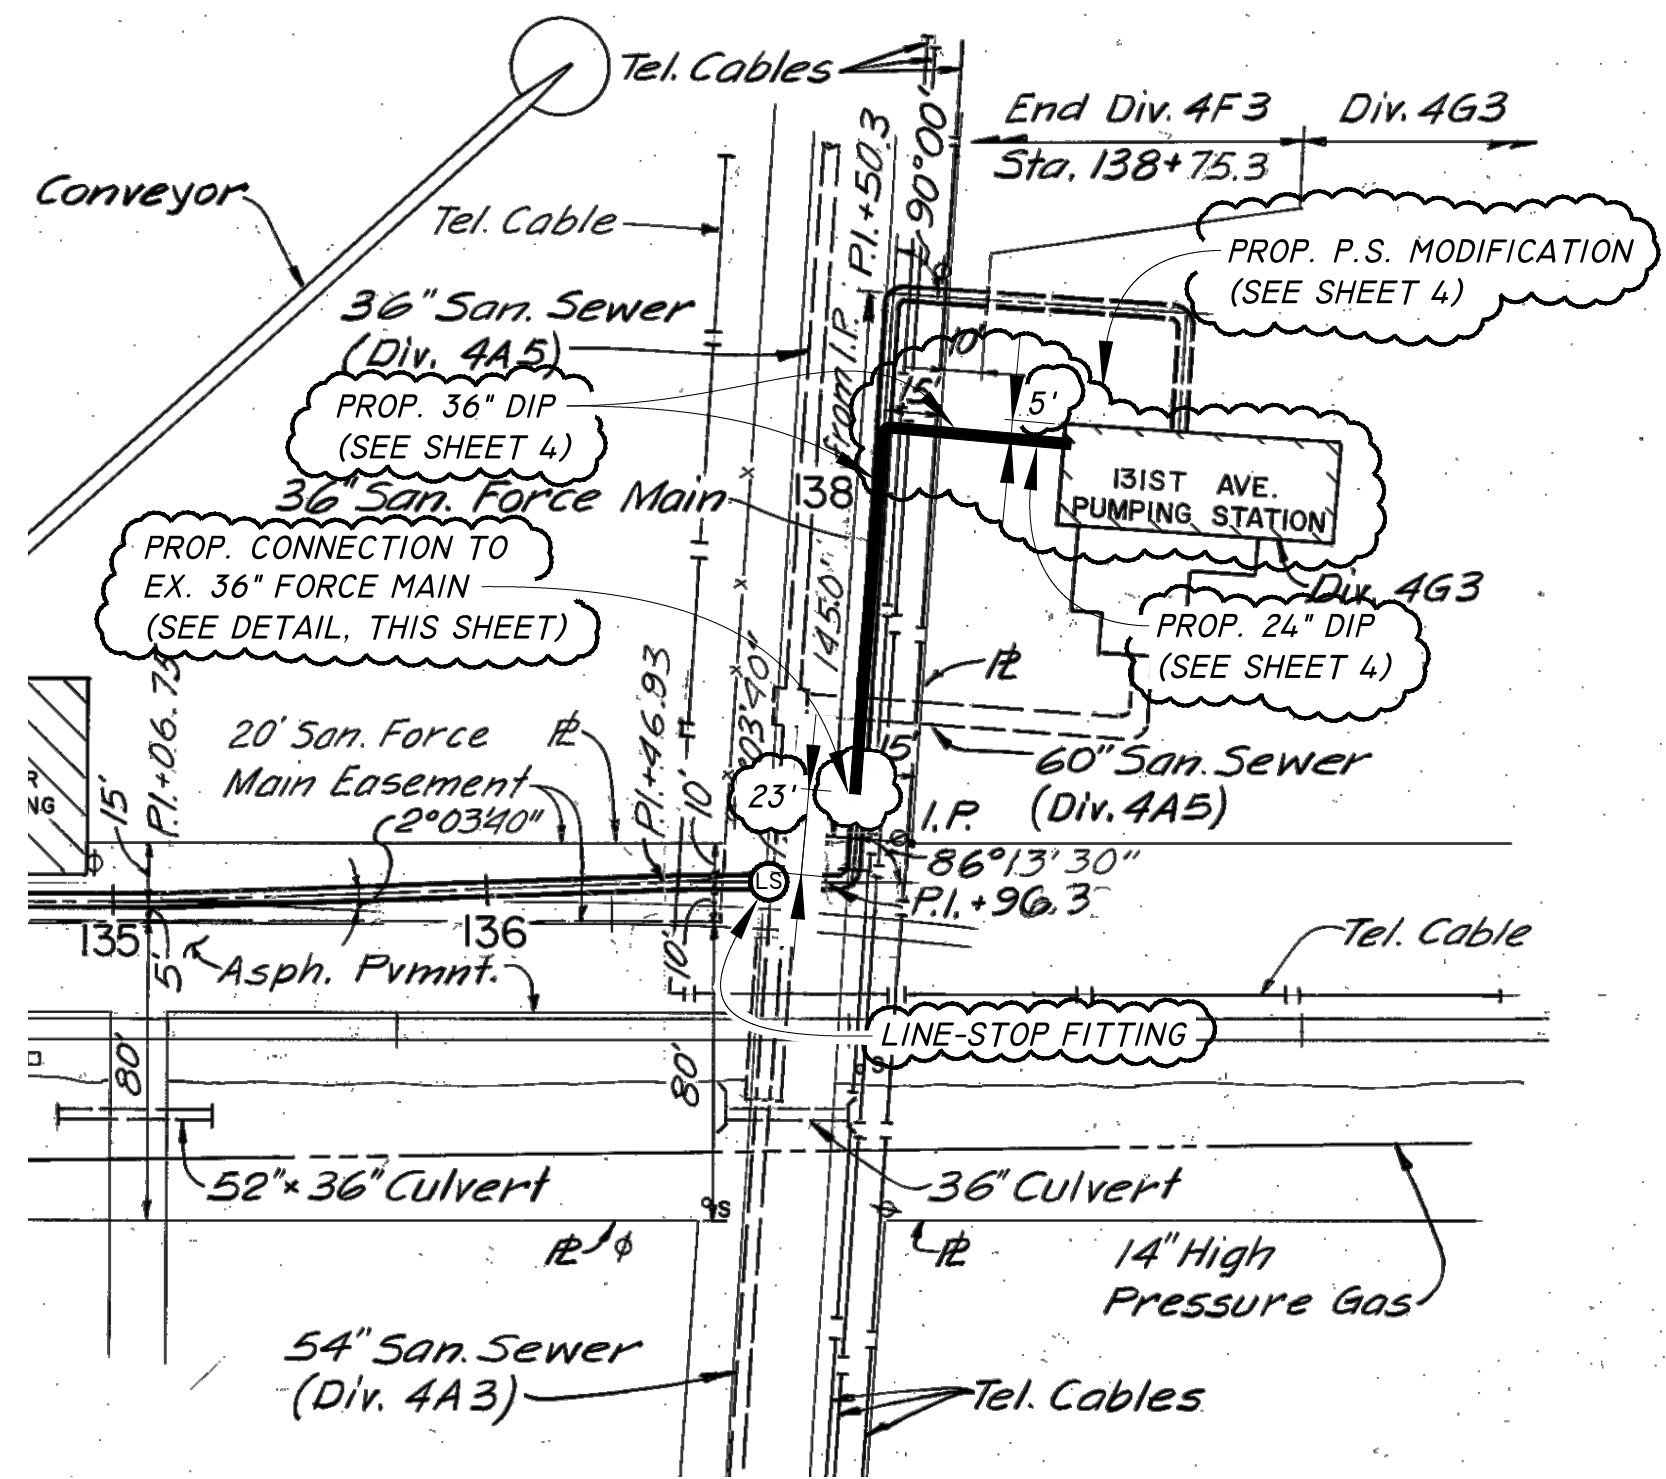 Tel. Cables
End Div. 4F3
Div. 4G3
Sta. 138+75.3
Conveyor
Tel. Cable
P.I.+50.3
90°00'
PROP. P.S. MODIFICATION
(SEE SHEET 4)
36" San. Sewer
(Div. 4A5)
from I.P.
10'
15'
5'
PROP. 36" DIP
(SEE SHEET 4)
138
131ST AVE.
PUMPING STATION
36" San. Force Main
PROP. CONNECTION TO
EX. 36" FORCE MAIN
(SEE DETAIL, THIS SHEET)
145.0'
Div. 4G3
PROP. 24" DIP
(SEE SHEET 4)
P.I.+06.75
P.I.+46.93
03'40"
PL
20' San. Force
Main Easement
PL
15'
2°03'40"
10'
23'
15'
60" San. Sewer
(Div. 4A5)
NG
I.P.
86°13'30"
P.I.+96.3
LS
135
136
5'
10'
Asph. Pvmnt.
Tel. Cable
LINE-STOP FITTING
80'
80'
S
52"x36" Culvert
36" Culvert
S
PL
PL
14" High
Pressure Gas
54" San. Sewer
(Div. 4A3)
Tel. Cables